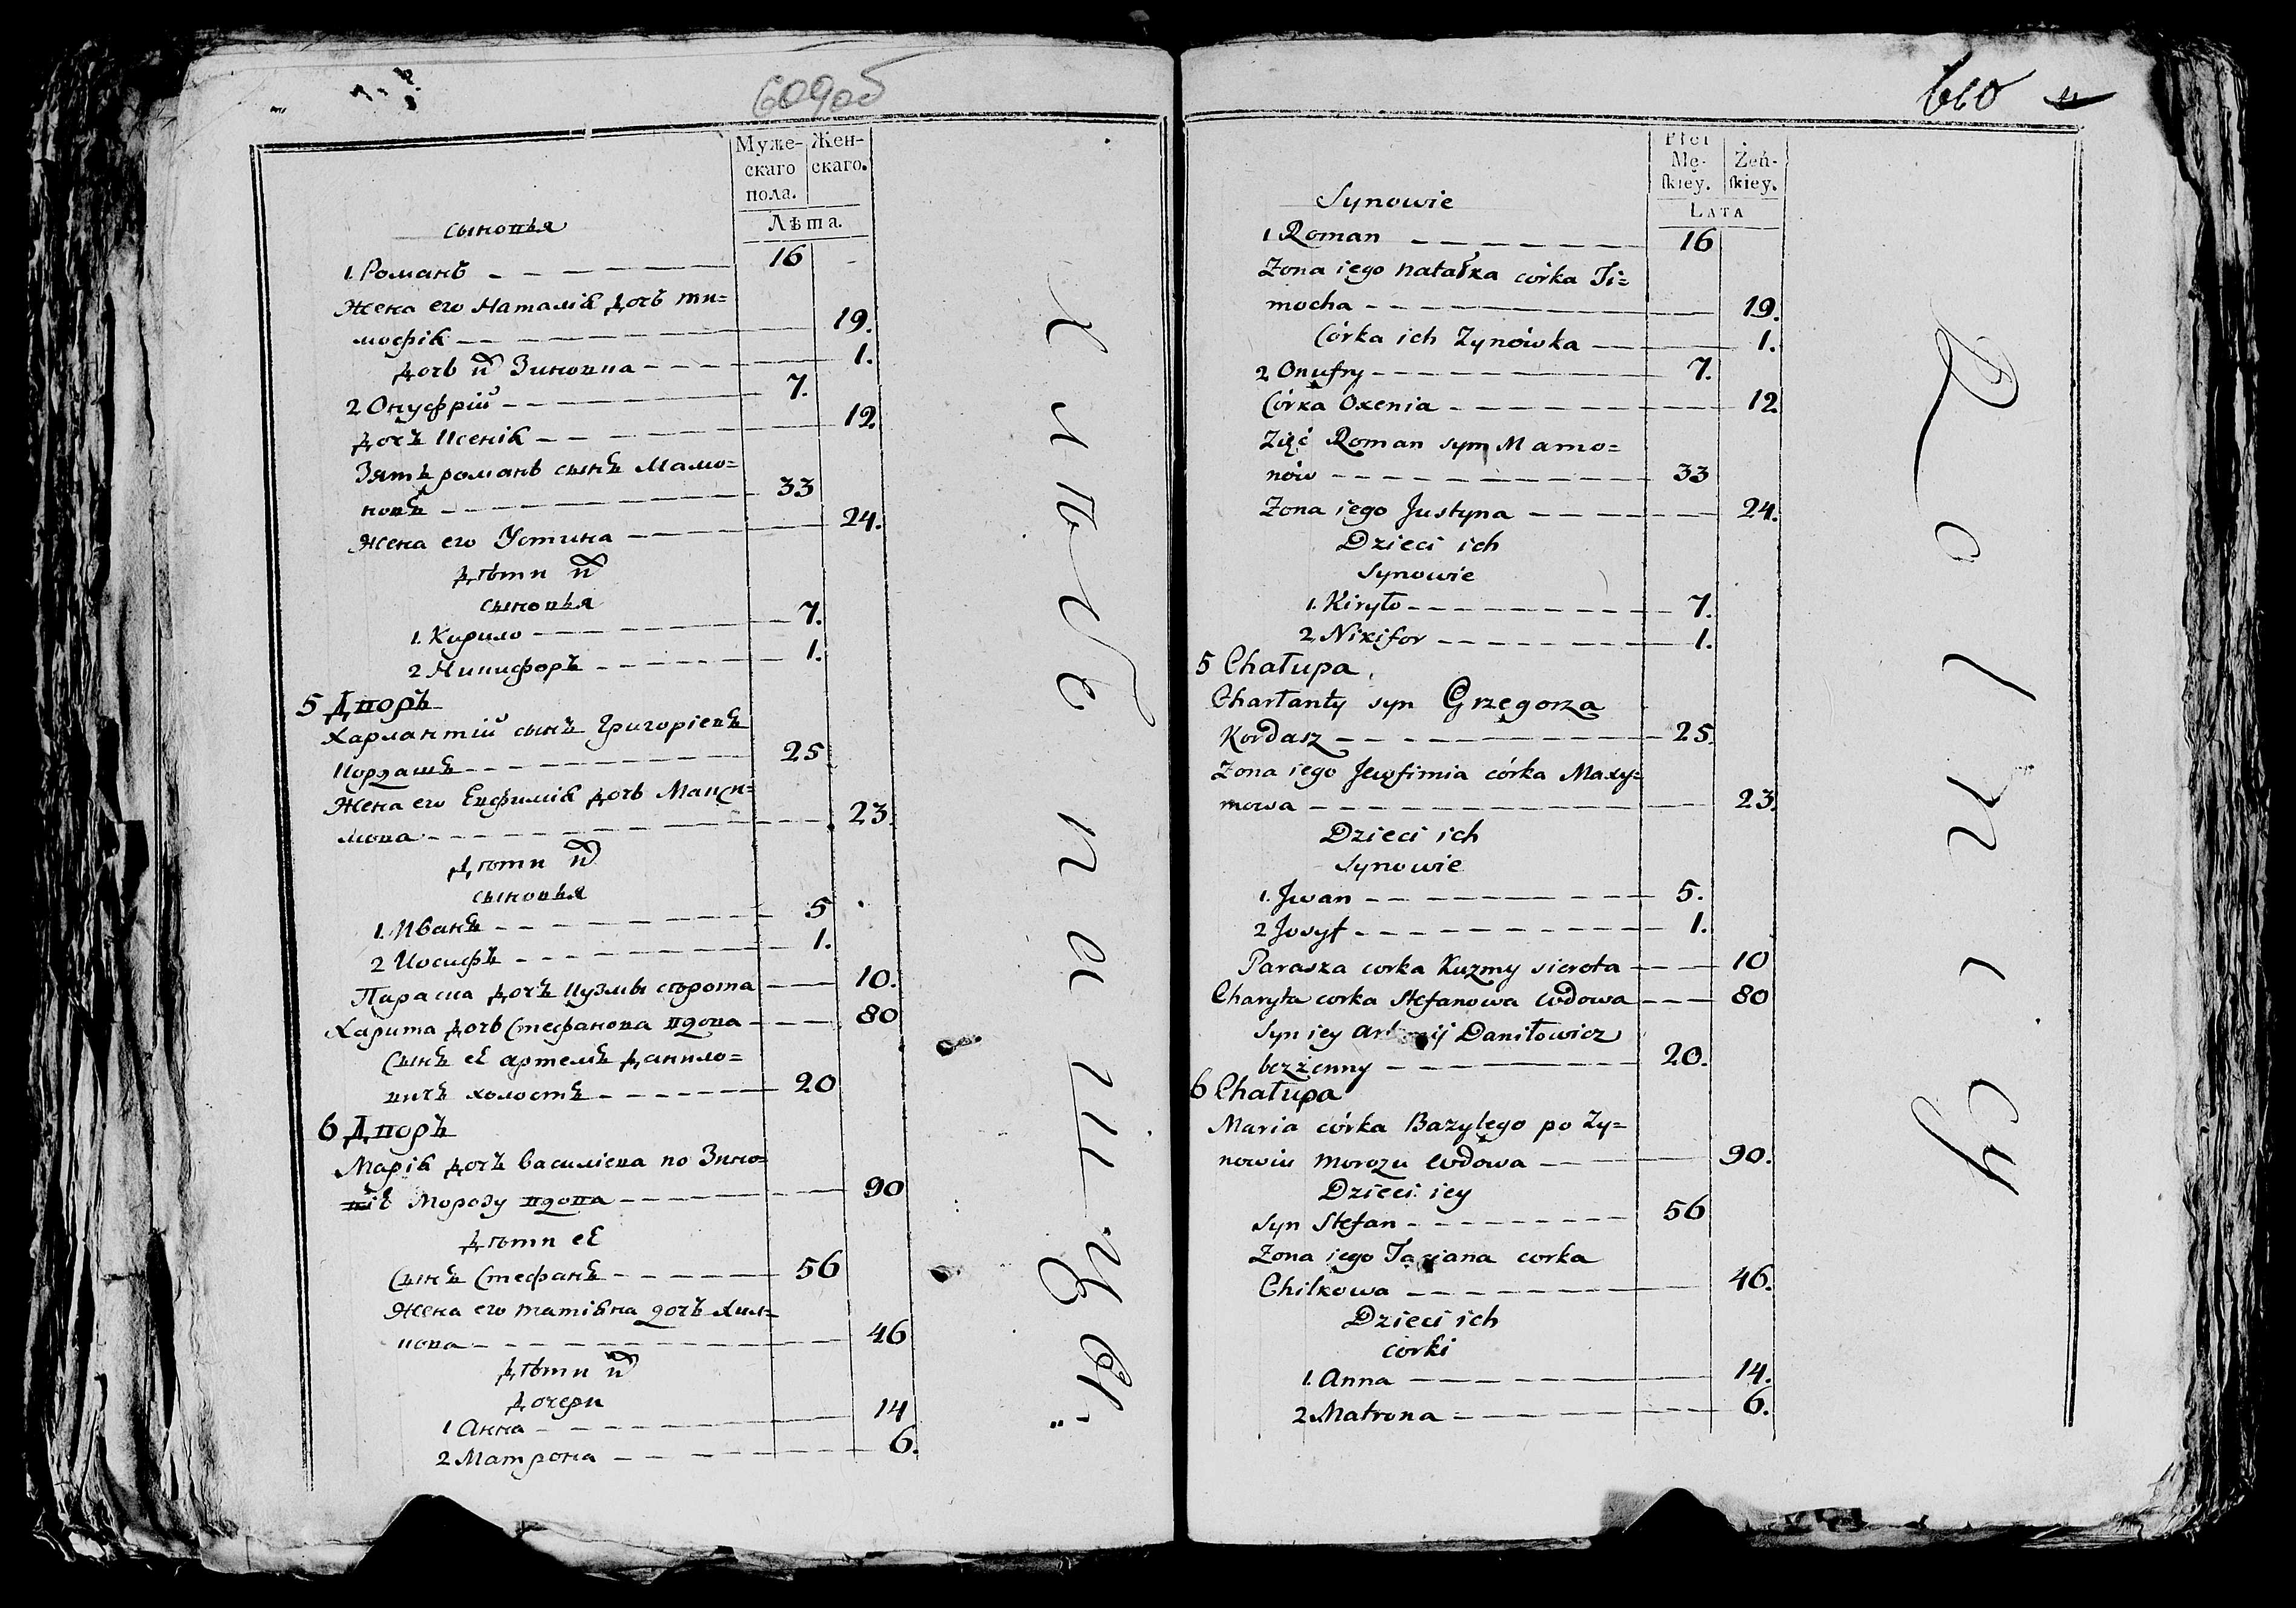 609об
Муже-
скаго
пола.
Жен-
скаго.
Лѣта.
сыновья
1. Романъ - - - 16
Жена его Наталія дочь Ти=
мофія - - - 19.
дочь их Зиновия - - - 1.
2 Онуфрій - - - 7.
дочь Ксенія - - - 12
Зять романъ сынъ Мамо=
новъ - - - 33
Жена его Устина - - - 24.
дѣти их
сыновья
1. Кирило - - - 7.
2 Никифоръ - - - 1.
5 Дворъ
Харлантій сынъ Григоріевъ
Кордашъ - - - 25
Жена его Евфимія дочь Макси=
мова - - - 23.
дѣти их
сыновья
1. Иванъ - - - 5
2 Иосифъ - - - 1.
Параска дочъ Кузмы сѣрота - - - 10.
Харита дочь Стефанова вдова - - - 80
Сынъ её артемъ Данило=
вичъ холостъ - - - 20
6 Дворъ
Марія дочъ василіева по Зино=
віѣ Морозу вдова - - - 90
дѣти её
Сынъ Стефанъ - - - 56
Жена его татіяна дочъ Хил=
кова - - - 46
дѣти их
дочери
1 Анна - - - 14
2 Матрона - - - 6.
Хлѣбопашцы.
610
Płci
Mę-
skiey.
Żeń-
skiey.
LATA
Synowie
1 Roman - - - 16
Zona iego Natałka córka Ti=
mocha - - - 19.
Córka ich Zynówka - - - 1.
2 Onufry - - - 7.
Córka Oxenia - - - 12
Zięć Roman syn Mamo=
nów - - - 33
Zona iego Justyna - - - 24.
Dzieci ich
Synowie
1. Kiryło - - - 7.
2 Nikifor - - - 1.
5 Chałupa
Charłanty syn Grzegorza
Kordasz - - - 25.
Zona iego Jewfimia córka Maxy=
mowa - - - 23.
Dzieci ich
Synowie
1. Jwan - - - 5.
2 Josyf - - - 1.
Paraska corka Kuzmy sierota - - - 10
Charyta corka Stefanowa wdowa - - - 80
Syn iey Daniłowicz
bezżenny - - - 20.
6 Chałupa
Maria córka Bazylego po Zy=
nowiu Morozu wdowa - - - 90.
Dzieci iey
Syn Stefan - - - 56
Zona iego Taciana corka
Chilkowa - - - 46.
Dzieci ich
corki
1. Anna - - - 14.
2 Matrona - - - 6.
Rolnicy